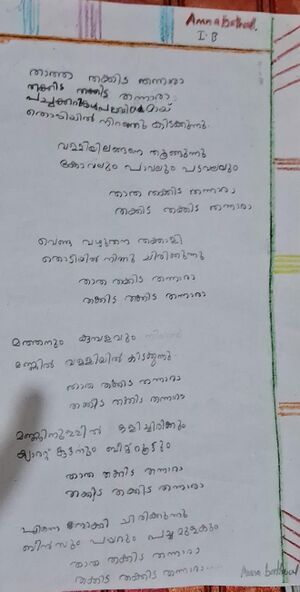 Amna bathool.
I. B
താത്താ തക്കിട തന്നാരാ
തക്കിട തക്കിട തന്നാരാ
പച്ചക്കറികൾ പലവിധമായ്
തൊടിയിൽ നിറഞ്ഞു കിടക്കുന്നു
വള്ളിയിലങ്ങനെ തൂങ്ങുന്നു
കോവലും പാവലും പടവലവും
താത തക്കിട തന്നാരാ
തക്കിട തക്കിട തന്നാരാ
വെണ്ട വഴുതന തക്കാളി
തൊടിയിൽ നിന്നു ചിരിക്കുന്നു
താത തക്കിട തന്നാരാ
തക്കിട തക്കിട തന്നാരാ
മത്തനും കുമ്പളവും
മണ്ണിൽ വള്ളിയിൽ കിടക്കുന്നു
താത തക്കിട തന്നാരാ
തക്കിട തക്കിട തന്നാരാ
മണ്ണിനുള്ളിൽ ഒളിച്ചിരിക്കും
ക്യാരറ്റ് കൂട്ടനും ബീറ്റ്റൂട്ടും
താത തക്കിട തന്നാരാ
തക്കിട തക്കിട തന്നാരാ
നോക്കി ചിരിക്കുന്നു
ബീൻസും പയറും പച്ചമുളകും
താത തക്കിട തന്നാരാ
തക്കിട തക്കിട തന്നാരാ...
Amna bathool